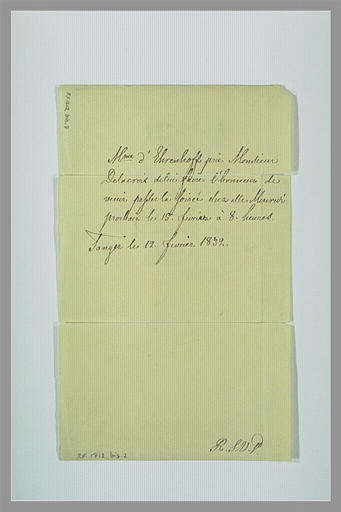 Mme d'Ehrenhoff prie Monsieur
Delacroix de lui faire l'honneur de
venir passer la soirée chez elle Mercredi
prochain le 15. fevrier à 8. heures.
Tanger le 12. fevrier 1832.
R. S. V. P
RF 1712 bis 2